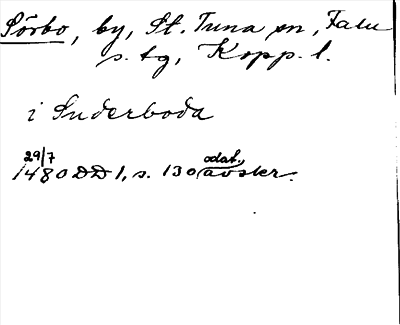 Sörbo, by, St. Tuna sn, Falu
s. tg, Kopp. l.
i Suderboda
29/7 odat.,
1480 DD 1, s. 130 avskr.